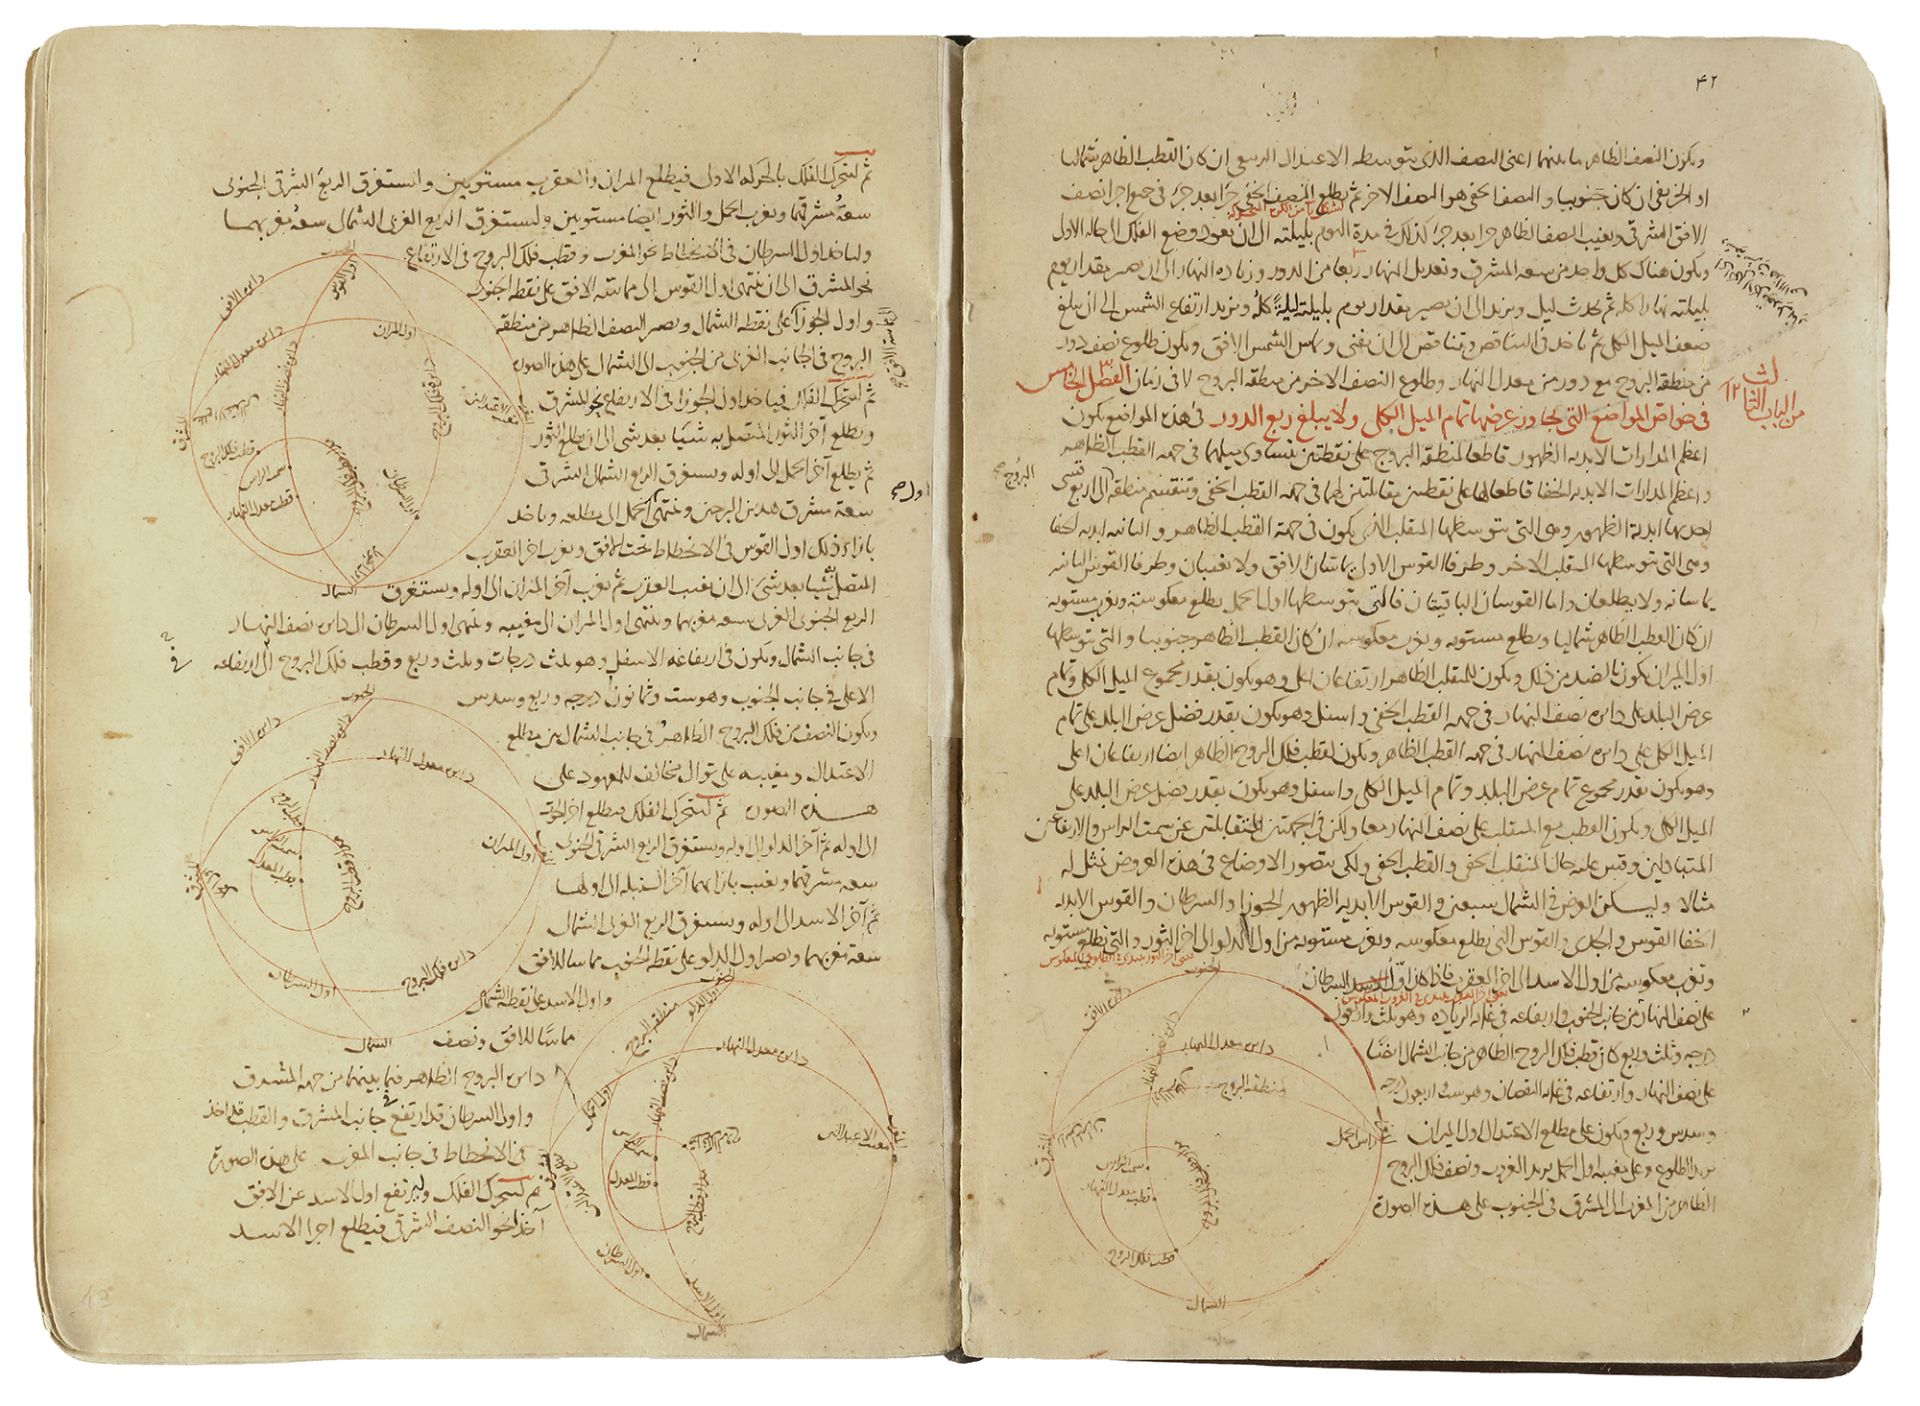 ٤٢
ويكون النصف الظاهر ما بينهما اعنى النصف الذى يتوسطه الاعتدال الربيعى ان كان القطب الظاهر شماليا
او الخريفى ان كان جنوبيا والنصف الخفى هو النصف الاخر ثم يطلع النصف الخفى جزءا بعد جزء فى جميع اجزاء نصف
الافق الشرقى ويغيب النصف الظاهر جزءا بعد جزء كذلك فى مدة اليوم بليلته الى ان يعود وضع الفلك الى حاله الاول
ويكون هناك كل واحد من سعة المشرق وتعديل النهار ربعا من الدور وزيادة النهار الى ان يصير مقدار يوم
بليلته نهارا كله ثم يحدث ليل ويزيد الى ان يصير مقدار يوم بليلته ليلة كله ويزيد ارتفاع الشمس الى ان يبلغ
ضعف الميل الكلى ثم ياخذ فى التناقص ويتناقص الى ان يفنى ويماس الشمس الافق ويكون طلوع نصف دور
من منطقة البروج مع دور من معدل النهار وطلوع النصف الاخر من منطقة البروج لا فى زمان الفصل الخامس
من الباب الثالث
فى خواص المواضع التى يجاوز عرضها تمام الميل الكلى ولا يبلغ ربع الدور فى هذه المواضع يكون
اعظم المدارات الابدية الظهور قاطعا لمنطقة البروج على نقطتين يتساوى ميلهما فى جهة القطب الظاهر
واعظم المدارات الابدية الخفاء قاطعا لها على نقطتين مقابلتين لهما فى جهة القطب الخفى وتنقسم منطقة البروج الى اربع قسى
احديها ابدية الظهور وهى التى يتوسطها المنقلب الذى يكون فى جهة القطب الظاهر والثانية ابدية الخفاء
وهى التى يتوسطها المنقلب الاخر وطرفا القوس الاولى يماسان الافق ولا يغيبان وطرفا القوس الثانية
يماسانه ولا يطلعان واما القوسان الباقيتان فالتى يتوسطها اول الحمل يطلع معكوسة ويغرب مستوية
ان كان القطب الظاهر شماليا ويطلع مستوية ويغرب معكوسة ان كان القطب الظاهر جنوبيا والتى يتوسطها
اول الميزان يكون بالضد من ذلك ويكون للمنقلب الظاهر ارتفاعان اعلى وهو يكون بقدر مجموع الميل الكلى وتمام
عرض البلد على دائرة نصف النهار فى جهة القطب الخفى واسفل وهو يكون بقدر فضل عرض البلد على تمام
الميل الكلى على دائرة نصف النهار فى جهة القطب الظاهر ويكون لقطب فلك البروج الظاهر ايضا ارتفاعان اعلى
وهو يكون بقدر مجموع تمام عرض البلد وتمام الميل الكلى واسفل وهو يكون بقدر فضل عرض البلد على
الميل الكلى ويكون القطب مع المنقلب على نصف النهار معا ولكن فى الجهتين المتقابلتين عن سمت الراس والارتفاعين
المتبادلين وقس عليه حال المنقلب الخفى والقطب الخفى ولكى يتصور الاوضاع فى هذه العروض نمثل له
مثالا وليكن العرض فى الشمال سبعين والقوس الابدية الظهور الجوزا والسرطان والقوس الابدية
الخفا القوس والجدى والقوس التى يطلع معكوسة ويغرب مستوية من اول الدلو الى اخر الثور والتى يطلع مستوية
وتغرب معكوسة من اول الاسد الى اخر العقرب فاذا كان اول السرطان
على نصف النهار من جانب الجنوب وارتفاعه فى غاية الزيادة وهو ثلث واربعون
درجة وثلث وربع كان قطب فلك البروج الظاهر من جانب الشمال ايضا
على نصف النهار وارتفاعه فى غاية النقصان وهو ست واربعون درجة
وسدس وربع ويكون على مطلع الاعتدال اول الميزان
يريد الطلوع وعلى مغيبه اول الحمل يريد الغروب ونصف فلك البروج
الظاهر من المغرب الى المشرق فى الجنوب على هذه الصورة
الجنوب
دائرة الافق
دائرة نصف النهار
دائرة معدل النهار
منطقة البروج
راس الحمل
المشرق
سمت الراس
قطب معدل النهار
قطب فلك البروج
الشمال
ثم ليتحرك الفلك بالحركة الاولى فيطلع الميزان والعقرب مستويين ويستغرق الربع الشرقى الجنوبى
سعة مشرقهما ويغرب الحمل والثور ايضا مستويين ويستغرق الربع الغربى الشمالى سعة مغربهما
ولياخذ اول السرطان فى الانحطاط نحو المغرب وقطب فلك البروج فى الارتفاع
نحو المشرق الى ان ينتهى اول القوس الى مماسة الافق على نقطة الجنوب
واول الجوزا على نقطة الشمال ويصير النصف الظاهر من منطقة
البروج فى الجانب الغربى من الجنوب الى الشمال على هذه الصورة
ثم ليتحرك الفلك فياخذ اول الجوزا فى الارتفاع نحو المشرق
ويطلع آخر الثور المتصل به شيئا بعد شئ الى ان يطلع الثور
ثم يطلع آخر الحمل الى اوله ويستغرق الربع الشمالى الشرقى
سعة مشرق هذين البرجين وينتهى اول الحمل الى مطلعه وياخذ
بازاء ذلك اول القوس فى الانحطاط تحت الافق ويغرب اخر العقرب
المتصل به شيئا بعد شئ الى ان يغيب العقرب ثم يغرب آخر الميزان الى اوله ويستغرق
الربع الجنوبى الغربى سعة مغربهما وينتهى اول الميزان الى مغيبه وينتهى اول السرطان الى دائرة نصف النهار
فى جانب الشمال ويكون فى ارتفاعه الاسفل وهو ثلث درجات وثلث وربع وقطب فلك البروج الى ارتفاعه
الاعلى فى جانب الجنوب وهو ست وثمانون درجة وربع وسدس
ويكون النصف من فلك البروج الظاهر فى جانب الشمال بين مطلع
الاعتدال ومغيبه على توال مخالف للمعهود على
هذه الصورة ثم ليتحرك الفلك فيطلع اخر الحوت
الى اوله ثم آخر الدلو الى اوله ويستغرق الربع الشرقى الجنوبى
سعة مشرقهما ويغيب بازائهما آخر السنبلة الى اولها
ثم آخر الاسد الى اوله ويستغرق الربع الغربى الشمالى
سعة مغربهما ويصير اول الدلو على نقطة الجنوب مماسا للافق
واول الاسد على نقطة الشمال
مماسا للافق ونصف
دائرة البروج الظاهر فيما بينهما من جهة المشرق
واول السرطان قد ارتفع فى جانب المشرق والقطب قد اخذ
فى الانحطاط فى جانب المغرب على هذه الصورة
ثم ليتحرك الفلك وليرتفع اول الاسد عن الافق
آخذا نحو النصف الشرقى فيطلع اجزا الاسد
الجنوب
اول القوس
دائرة الافق
دائرة معدل النهار
دائرة نصف النهار
اول الميزان
المشرق
قطب فلك البروج
سمت الراس
قطب معدل النهار
اول السرطان
اول الجوزا
الشمال
الجنوب
دائرة الافق
دائرة نصف النهار
دائرة معدل النهار
اول الميزان
المشرق
دائرة فلك البروج
اول السرطان
الشمال
الجنوب
اول الدلو
منطقة البروج
دائرة معدل النهار
دائرة نصف النهار
اول الحمل
سمت الراس
قطب المعدل
اول السرطان
اول الاسد
الشمال